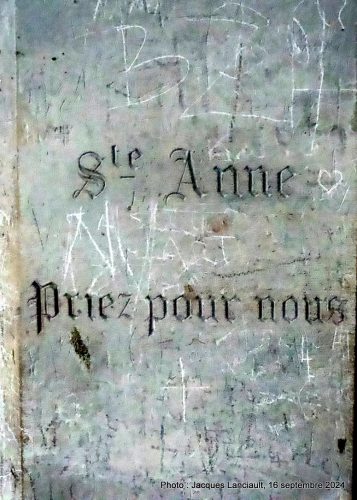 Ste Anne
Priez pour nous
Photo : Jacques Lanciault, 16 septembre 2024